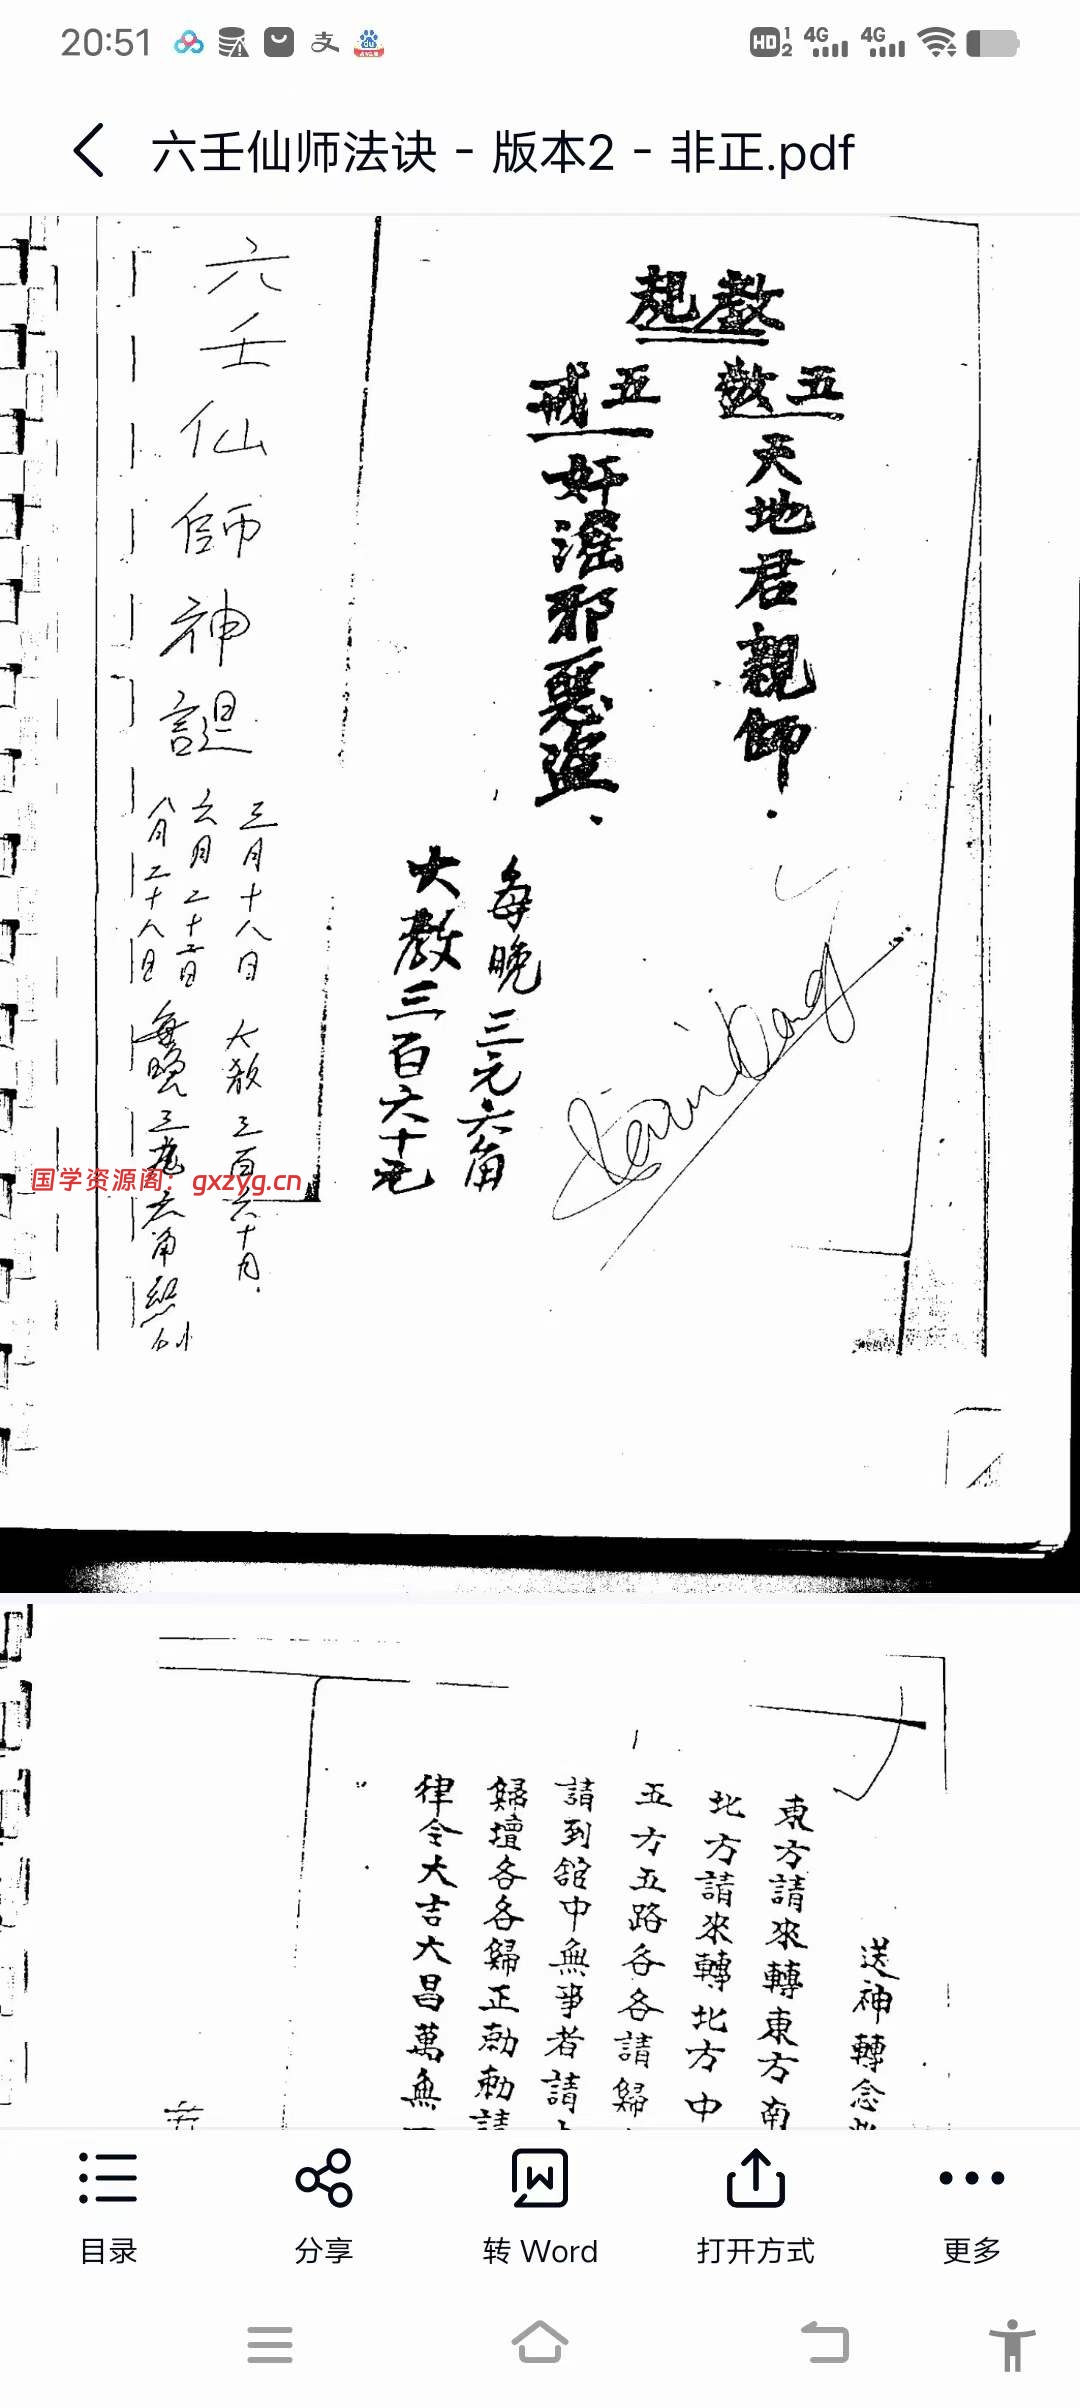 20:51
六壬仙师法诀 - 版本2 - 非正.pdf
教規
五敬
天地君親師.
五戒
奸滛邪惡盜.
每晚三元六角
大教三百六十元
六壬仙師神誕
三月十八日 大教三百六十月.
六月二十二日
八月二十八日 每晚三元六角
国学资源阁：gxzyg.cn
送神轉念
東方請來轉東方南
北方請來轉北方中
五方五路各各請歸
請到舘中無事者請
歸壇各各歸正勅勅請
律令大吉大昌萬無
目录
分享
转 Word
打开方式
更多